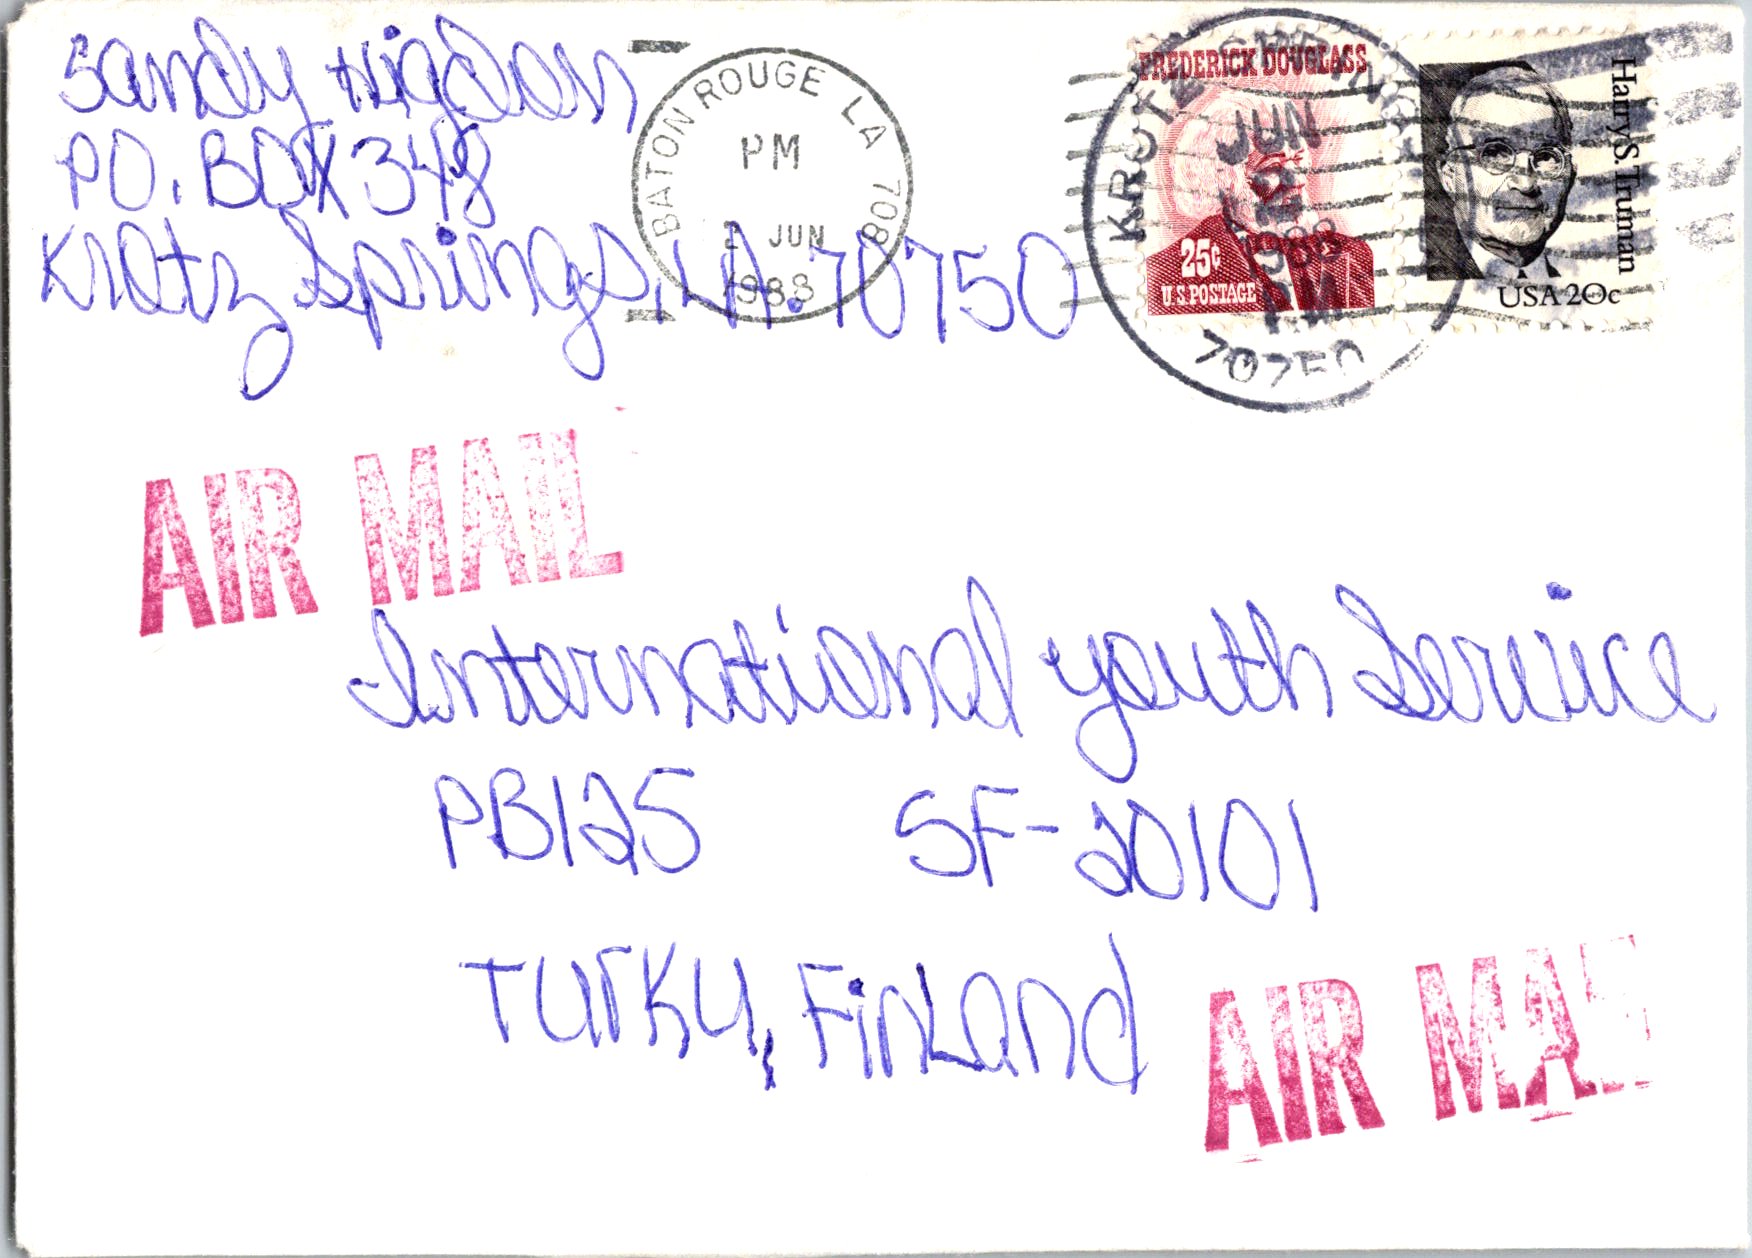 Sandy Higdon
P.O. BOX 348
Krotz Springs, LA. 70750
BATON ROUGE LA 708
PM
2 JUN
1988
KROTZ
JUN
1988
70750
FREDERICK DOUGLASS
25c
U.S. POSTAGE
Harry S. Truman
USA 20c
AIR MAIL
International Youth Service
PB125 SF-20101
Turku, Finland
AIR MAIL